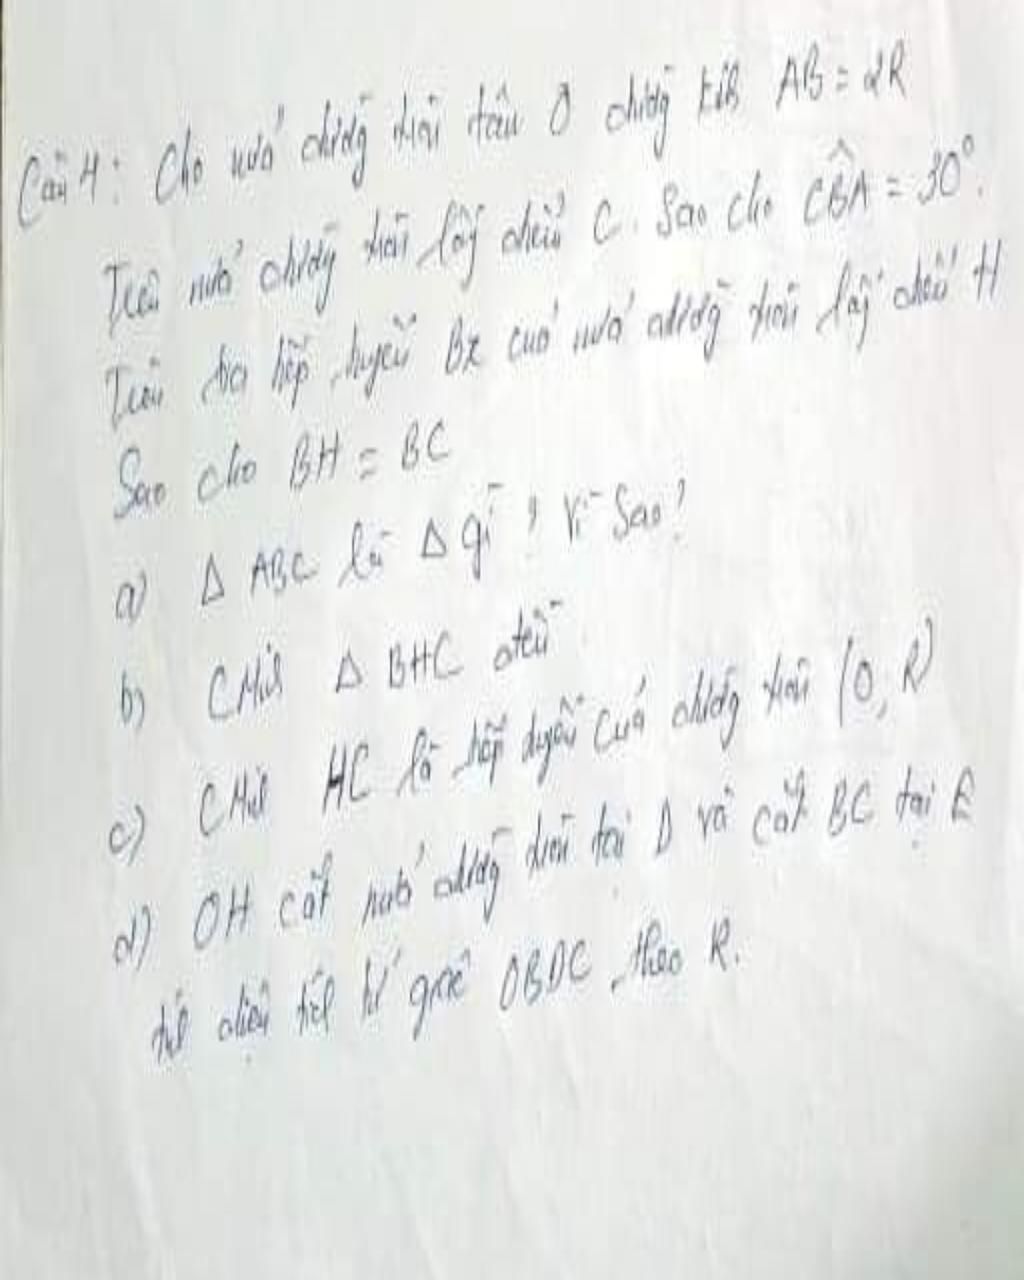 Câu 4: Cho nửa đường tròn tâm O đường kính AB = 2R
Trên nửa đường tròn lấy điểm C. Sao cho CBA = 30°.
Trên tia tiếp tuyến Bx của nửa đường tròn lấy điểm H
Sao cho BH = BC
a) Δ ABC là Δ gì? Vì Sao?
b) CMinh Δ BHC đều
c) CMinh HC là tiếp tuyến của đường tròn (O, R)
d) OH cắt nửa đường tròn tại D và cắt BC tại E
tính diện tích tứ giác OBDC theo R.